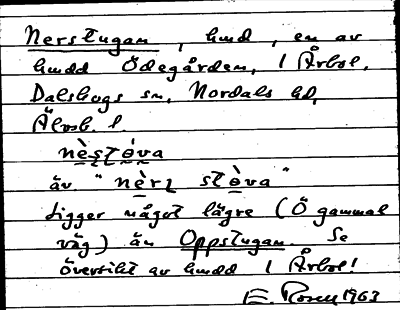 Nerstugan, hmd, en av
hmdd Ödegården, 1 Årbol,
Dalskogs sn, Nordals hd,
Älvsb. l.
nèʂtə̀va
äv "nèrʐ stə̀va"
Ligger något lägre (Ö gammal
väg) än Oppstugan. Se
översikt av hmdd 1 Årbol!
E. Rosén 1963